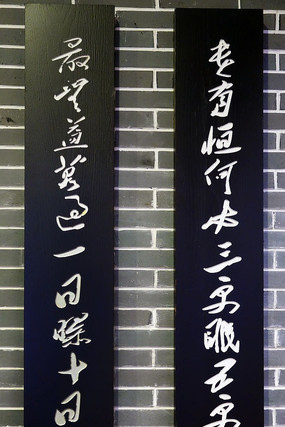 贵有恒何必三更眠五更
最无益莫过一日曝十日